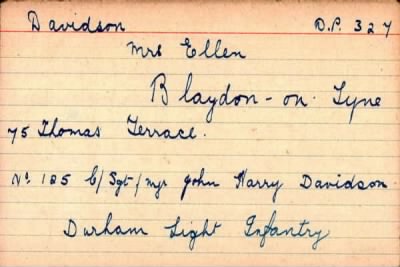 Davidson D.P. 327
Mrs Ellen
Blaydon-on-Tyne
75 Thomas Terrace.
No. 125 C/Sgt/Mjr John Harry Davidson
Durham Light Infantry